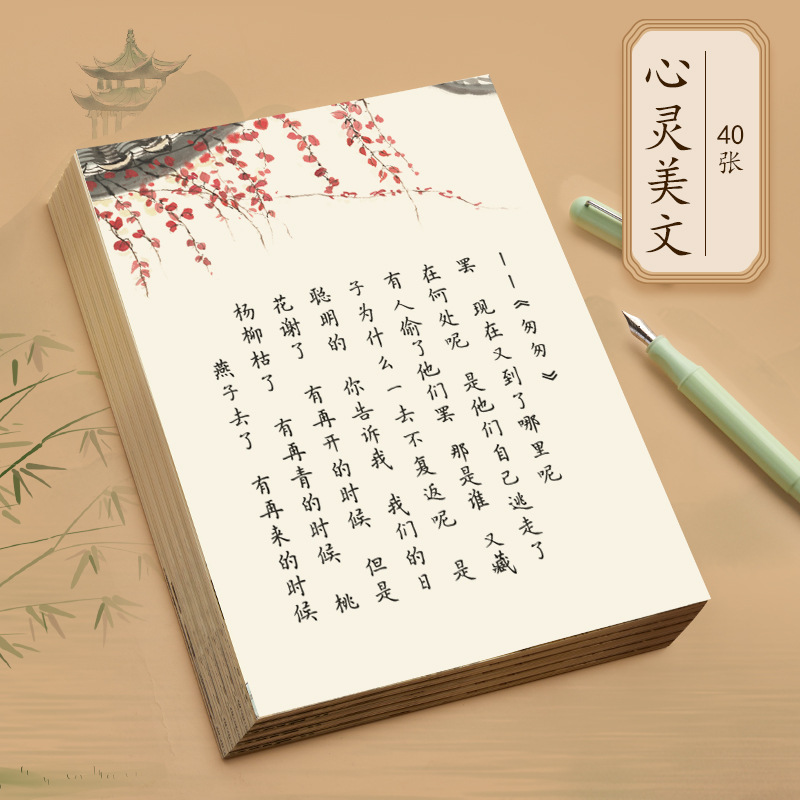 燕子去了 有再来的时候
杨柳枯了 有再青的时候 桃
花谢了 有再开的时候 但是
聪明的 你告诉我 我们的日
子为什么一去不复返呢 是
有人偷了他们罢 那是谁 又藏
在何处呢 是他们自己逃走了
罢 现在又到了哪里呢
——《匆匆》
心灵美文
40张